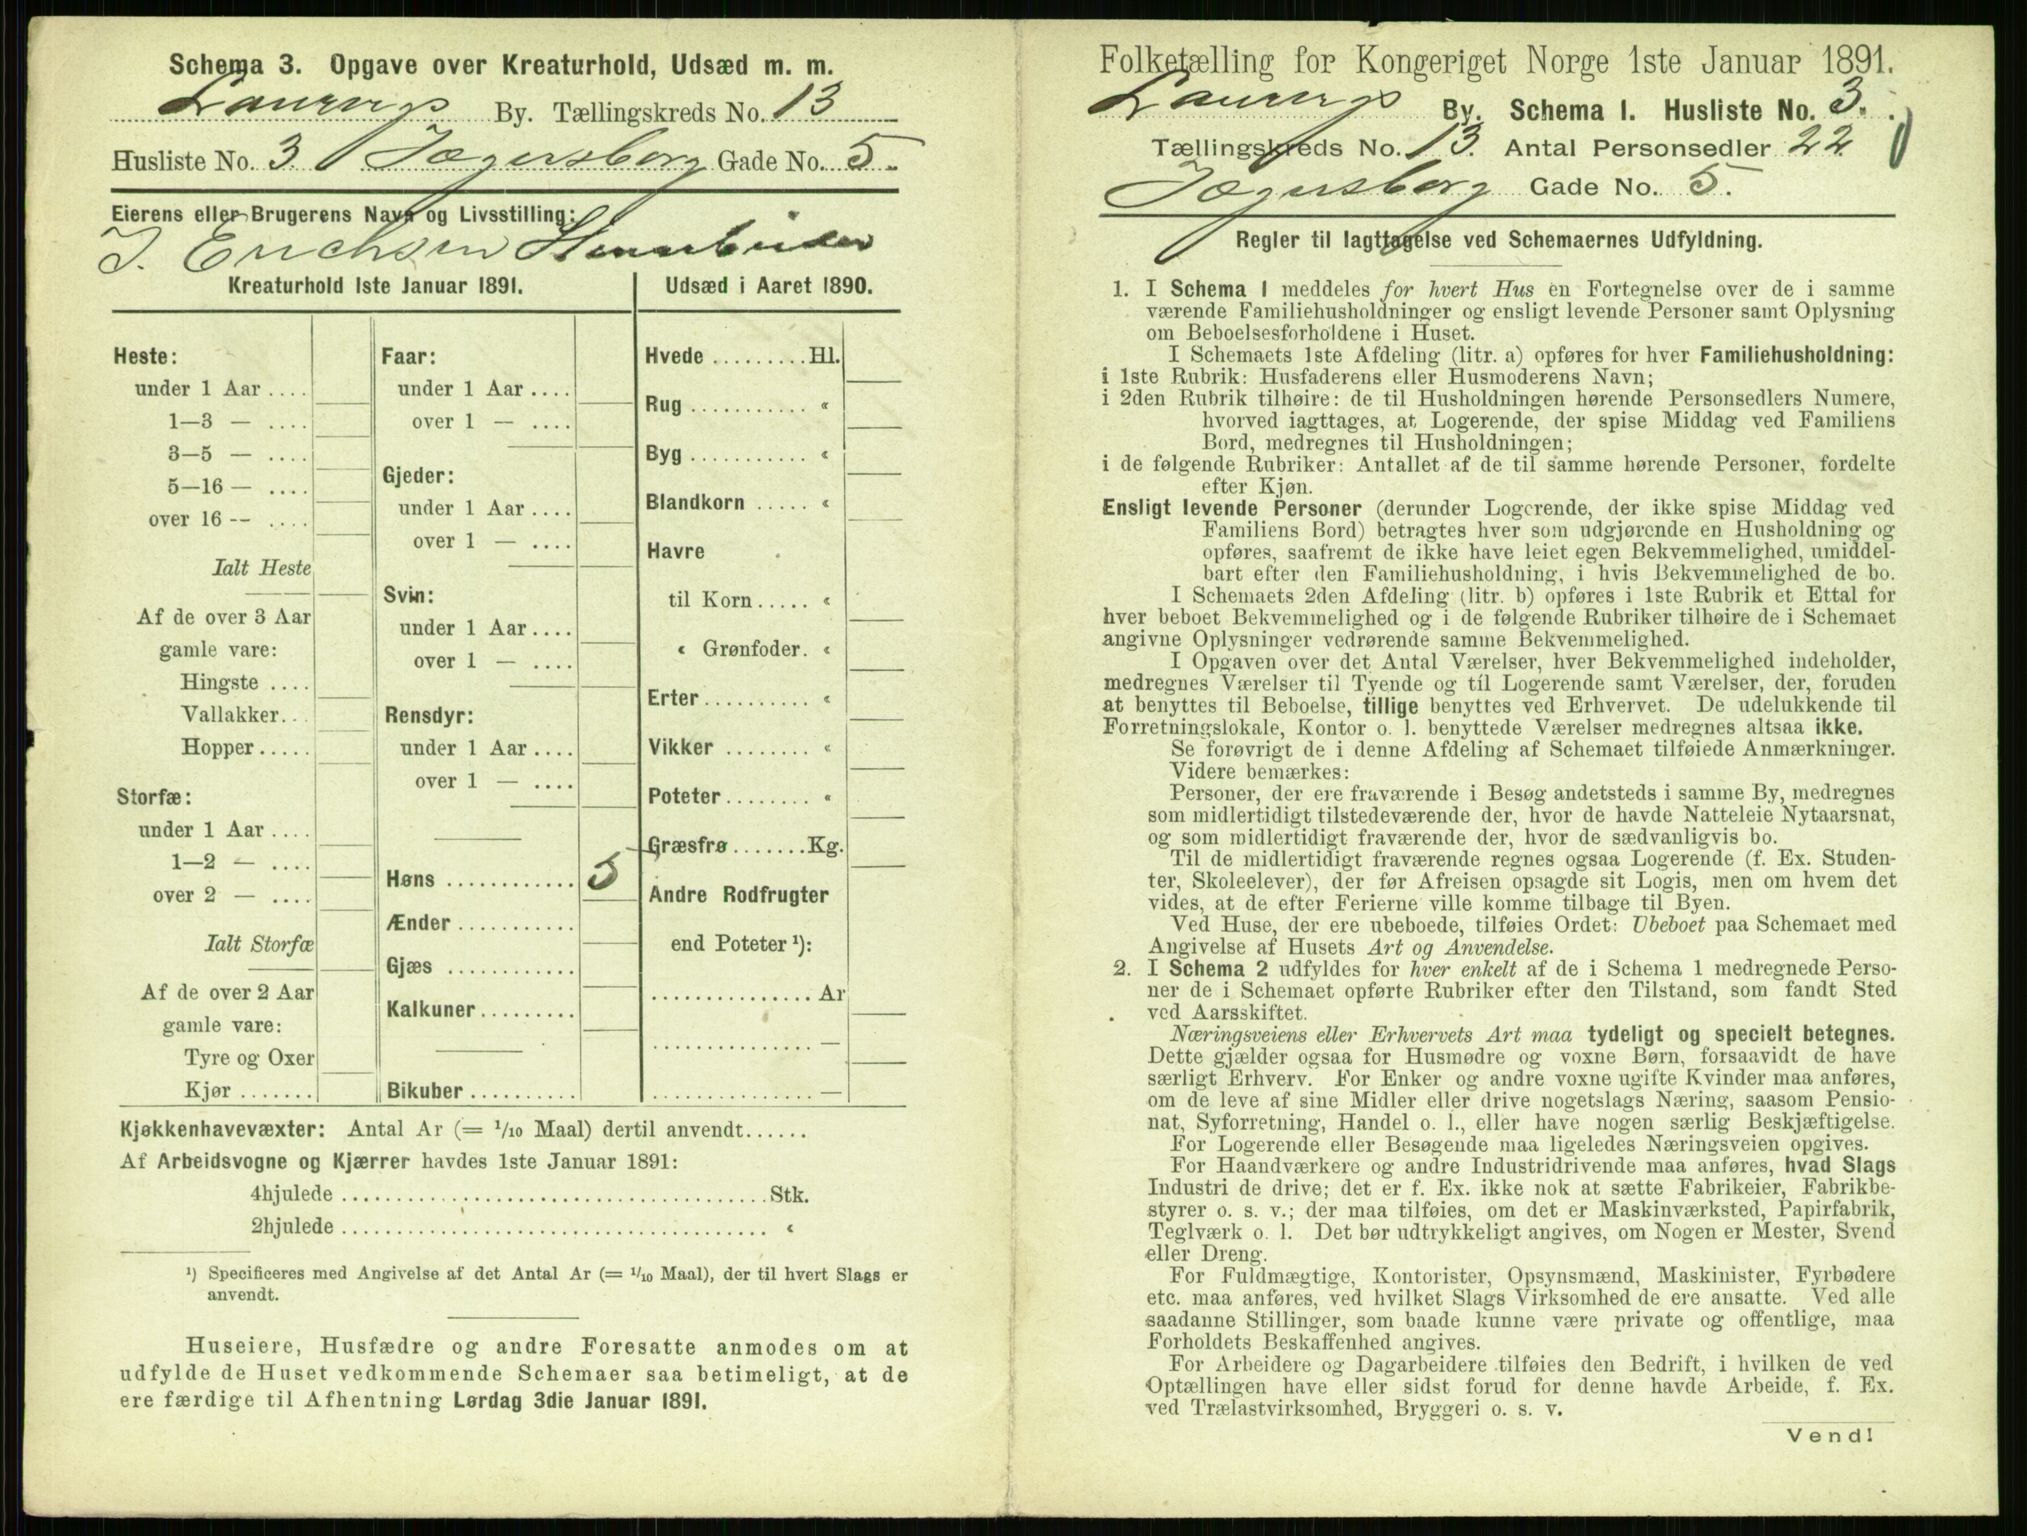 Schema 3. Opgave over Kreaturhold, Udsæd m. m.
Laurvigs By. Tællingskreds No. 13
Husliste No. 3 Jegersborg Gade No. 5.
Eierens eller Brugerens Navn og Livsstilling:
J. Erichsen
Kreaturhold 1ste Januar 1891.
Heste:
under 1 Aar ....
1—3 — ....
3—5 — ....
5—16 — ....
over 16 -- ....
Ialt Heste
Af de over 3 Aar
gamle vare:
Hingste ....
Vallakker...
Hopper.....
Storfæ:
under 1 Aar ....
1—2 — ....
over 2 — ....
Ialt Storfæ
Af de over 2 Aar
gamle vare:
Tyre og Oxer
Kjør .......
Faar:
under 1 Aar ....
over 1 — ....
Gjeder:
under 1 Aar ....
over 1 — ....
Svin:
under 1 Aar ....
over 1 — ....
Rensdyr:
under 1 Aar ....
over 1 — ....
Høns ............ 5
Ænder ...........
Gjæs ............
Kalkuner.........
Bikuber ..........
Udsæd i Aaret 1890.
Hvede .........Hl.
Rug ........... «
Byg ........... «
Blandkorn ..... «
Havre
til Korn ..... «
« Grønfoder. «
Erter .......... «
Vikker ........ «
Poteter ........ «
Græsfrø .......Kg.
Andre Rodfrugter
end Poteter ¹):
............... Ar
............... —
............... —
Kjøkkenhavevæxter: Antal Ar (= 1/10 Maal) dertil anvendt......
Af Arbeidsvogne og Kjærrer havdes 1ste Januar 1891:
4hjulede ....................................... Stk.
2hjulede ....................................... «
¹) Specificeres med Angivelse af det Antal Ar (= 1/10 Maal), der til hvert Slags er
anvendt.
Huseiere, Husfædre og andre Foresatte anmodes om at
udfylde de Huset vedkommende Schemaer saa betimeligt, at de
ere færdige til Afhentning Lørdag 3die Januar 1891.
Folketælling for Kongeriget Norge 1ste Januar 1891.
Laurvigs By. Schema I. Husliste No. 3.
Tællingskreds No. 13. Antal Personsedler 22
Jegersborg Gade No. 5.
Regler til Iagttagelse ved Schemaernes Udfyldning.
1. I Schema I meddeles for hvert Hus en Fortegnelse over de i samme
værende Familiehusholdninger og ensligt levende Personer samt Oplysning
om Beboelsesforholdene i Huset.
I Schemaets 1ste Afdeling (litr. a) opføres for hver Familiehusholdning:
i 1ste Rubrik: Husfaderens eller Husmoderens Navn;
i 2den Rubrik tilhøire: de til Husholdningen hørende Personsedlers Numere,
hvorved iagttages, at Logerende, der spise Middag ved Familiens
Bord, medregnes til Husholdningen;
i de følgende Rubriker: Antallet af de til samme hørende Personer, fordelte
efter Kjøn.
Ensligt levende Personer (derunder Logerende, der ikke spise Middag ved
Familiens Bord) betragtes hver som udgjørende en Husholdning og
opføres, saafremt de ikke have leiet egen Bekvemmelighed, umiddel-
bart efter den Familiehusholdning, i hvis Bekvemmelighed de bo.
I Schemaets 2den Afdeling (litr. b) opføres i 1ste Rubrik et Ettal for
hver beboet Bekvemmelighed og i de følgende Rubriker tilhøire de i Schemaet
angivne Oplysninger vedrørende samme Bekvemmelighed.
I Opgaven over det Antal Værelser, hver Bekvemmelighed indeholder,
medregnes Værelser til Tyende og til Logerende samt Værelser, der, foruden
at benyttes til Beboelse, tillige benyttes ved Erhvervet. De udelukkende til
Forretningslokale, Kontor o. l. benyttede Værelser medregnes altsaa ikke.
Se forøvrigt de i denne Afdeling af Schemaet tilføiede Anmærkninger.
Videre bemærkes:
Personer, der ere fraværende i Besøg andetsteds i samme By, medregnes
som midlertidigt tilstedeværende der, hvor de havde Natteleie Nytaarsnat,
og som midlertidigt fraværende der, hvor de sædvanligvis bo.
Til de midlertidigt fraværende regnes ogsaa Logerende (f. Ex. Studen-
ter, Skoleelever), der før Afreisen opsagde sit Logis, men om hvem det
vides, at de efter Ferierne ville komme tilbage til Byen.
Ved Huse, der ere ubeboede, tilføies Ordet: Ubeboet paa Schemaet med
Angivelse af Husets Art og Anvendelse.
2. I Schema 2 udfyldes for hver enkelt af de i Schema 1 medregnede Perso-
ner de i Schemaet opførte Rubriker efter den Tilstand, som fandt Sted
ved Aarsskiftet.
Næringsveiens eller Erhvervets Art maa tydeligt og specielt betegnes.
Dette gjælder ogsaa for Husmødre og voxne Børn, forsaavidt de have
særligt Erhverv. For Enker og andre voxne ugifte Kvinder maa anføres,
om de leve af sine Midler eller drive nogetslags Næring, saasom Pensio-
nat, Syforretning, Handel o. l., eller have nogen særlig Beskjæftigelse.
For Logerende eller Besøgende maa ligeledes Næringsveien opgives.
For Haandværkere og andre Industridrivende maa anføres, hvad Slags
Industri de drive; det er f. Ex. ikke nok at sætte Fabrikeier, Fabrikbe-
styrer o. s. v.; der maa tilføies, om det er Maskinværksted, Papirfabrik,
Teglværk o. l. Det bør udtrykkeligt angives, om Nogen er Mester, Svend
eller Dreng.
For Fuldmægtige, Kontorister, Opsynsmænd, Maskinister, Fyrbødere
etc. maa anføres, ved hvilket Slags Virksomhed de ere ansatte. Ved alle
saadanne Stillinger, som baade kunne være private og offentlige, maa
Forholdets Beskaffenhed angives.
For Arbeidere og Dagarbeidere tilføies den Bedrift, i hvilken de ved
Optællingen have eller sidst forud for denne havde Arbeide, f. Ex.
ved Trælastvirksomhed, Bryggeri o. s. v.
Vend!